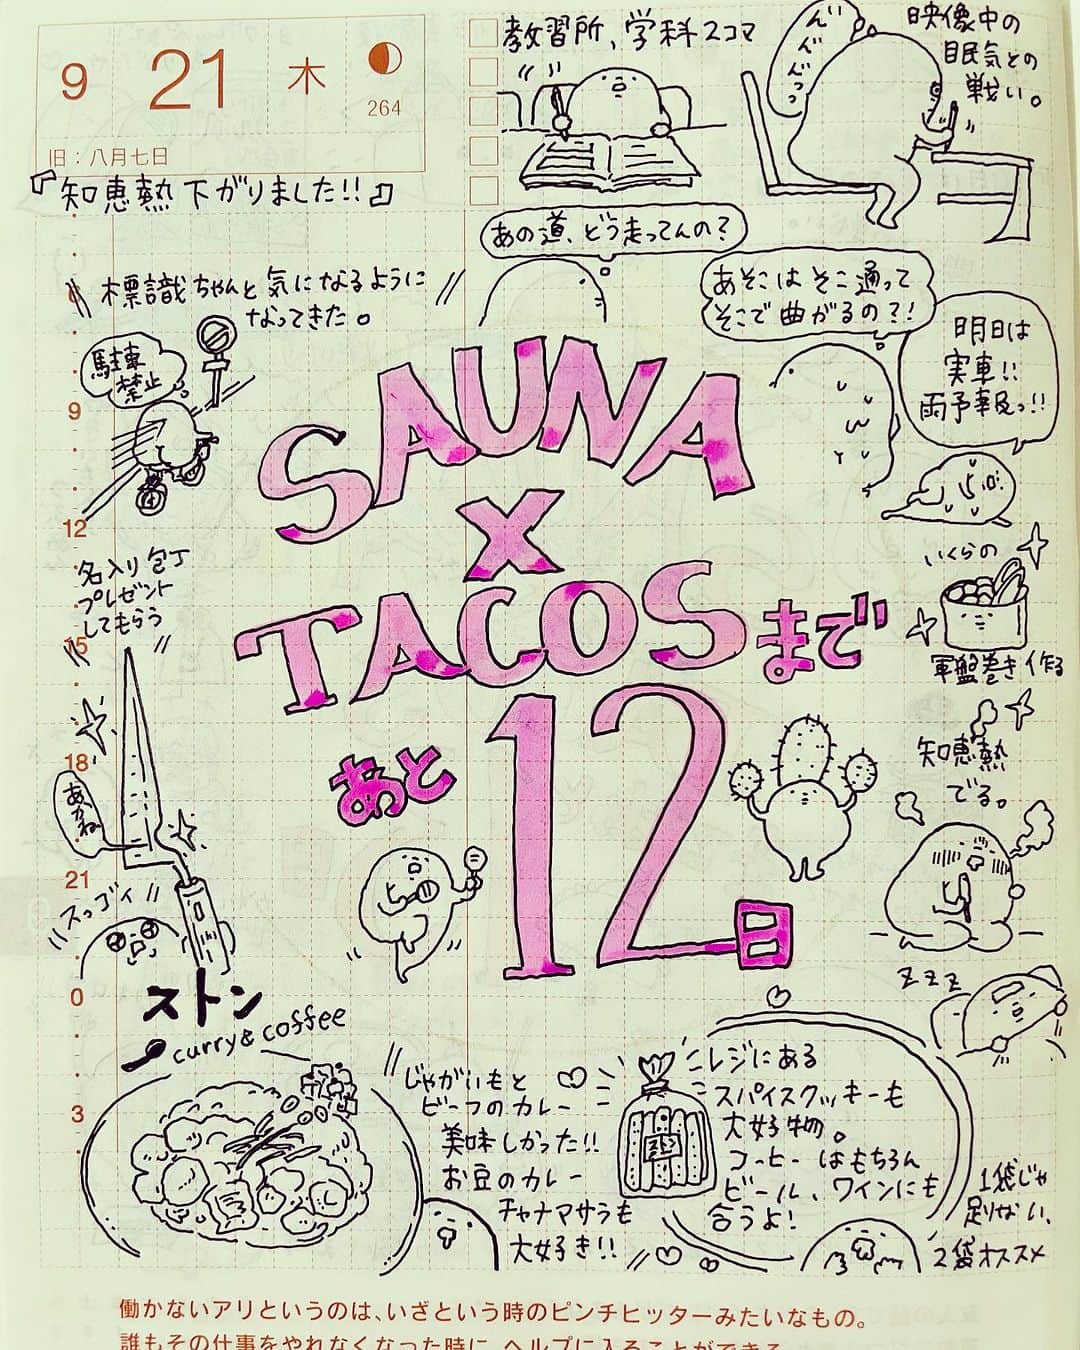 9 21 木
264
旧：八月七日
『知恵熱下がりました!!』
教習所、学科2コマ
んんんんっっ
映像中の
眠気との
戦い。
あの道、どう走ってんの？
あそこはそこ通って
そこで曲がるの？！
明日は
実車!!
雨予報っ!!
標識ちゃんと気になるように
なってきた。
駐車
禁止
9
12
15
18
21
0
3
SAUNA
×
TACOSまで
あと
12日
名入り包丁
プレゼント
してもらう
あかね
スっゴイ
いくらの
軍盤巻き作る
知恵熱
でる。
zzz
ストン
curry & coffee
じゃがいもと
ビーフのカレー
美味しかった!!
お豆のカレー
チャナマサラも
大好き!!
レジにある
スパイスクッキーも
大好物。
コーヒーはもちろん
ビール、ワインにも
合うよ！
1袋じゃ
足りない、
2袋オススメ
働かないアリというのは、いざという時のピンチヒッターみたいなもの。
誰もその仕事をやれなくなった時に、ヘルプに入ることができる